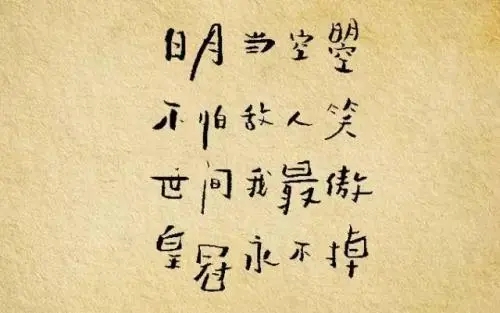 日月当空曌
不怕敌人笑
世间我最傲
皇冠永不掉